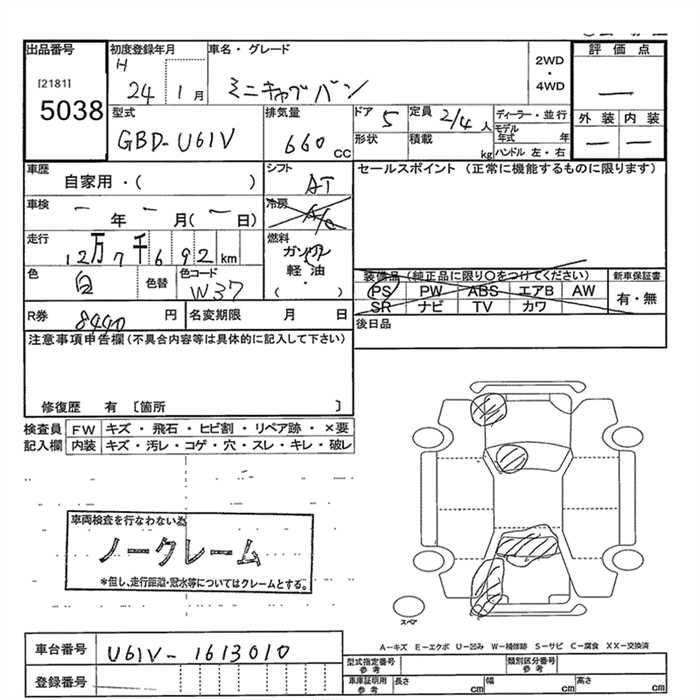 出品番号
[2181]
5038
初度登録年月
H
24 1月
車名・グレード
ミニキャブバン
2WD
・
4WD
評価点
—
外装 内装
— —
型式
GBD-U61V
排気量
660 CC
ドア 5
定員 2/4人
ディーラー・並行
形状
積載 kg
モデル年式 年
ハンドル 左・右
車歴
自家用・( )
シフト
AT
セールスポイント (正常に機能するものに限ります)
車検
— 年 — 月(— 日)
冷房
A/C
走行
12万7千692km
燃料
ガソリン
軽油
( ・ )
色
白
色替
色コード
W37
装備品(純正品に限り○をつけてください)
PS PW ABS エアB AW
SR ナビ TV カワ
新車保証書
有・無
R券 8440 円
名変期限 月 日
後日品
注意事項申告欄(不具合内容等は具体的に記入して下さい)
修復歴 有 [箇所 ]
検査員記入欄
FW キズ・飛石・ヒビ割・リペア跡・×要
内装 キズ・汚レ・コゲ・穴・スレ・キレ・破レ
車両検査を行なわない為
ノークレーム
*但し、走行距離・冠水等についてはクレームとする。
スペア
A−キズ E−エクボ U−凹み W−補修跡 S−サビ C−腐食 XX−交換済
車台番号 U61V-1613010
登録番号
型式指定番号 参考
類別区分番号 参考
車庫証明用 参考 長さ cm 幅 cm 高さ cm